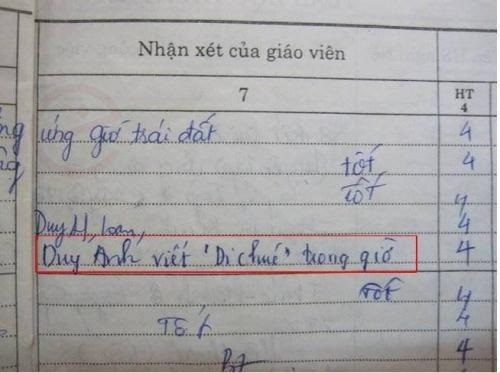 Nhận xét của giáo viên
7 HT 4
ứng giờ trái đất 4
tốt 4
tốt 4
Duy H, loan, 4
Duy Anh viết "Di chúc" trong giờ 4
Tốt 4
Tốt 4
4